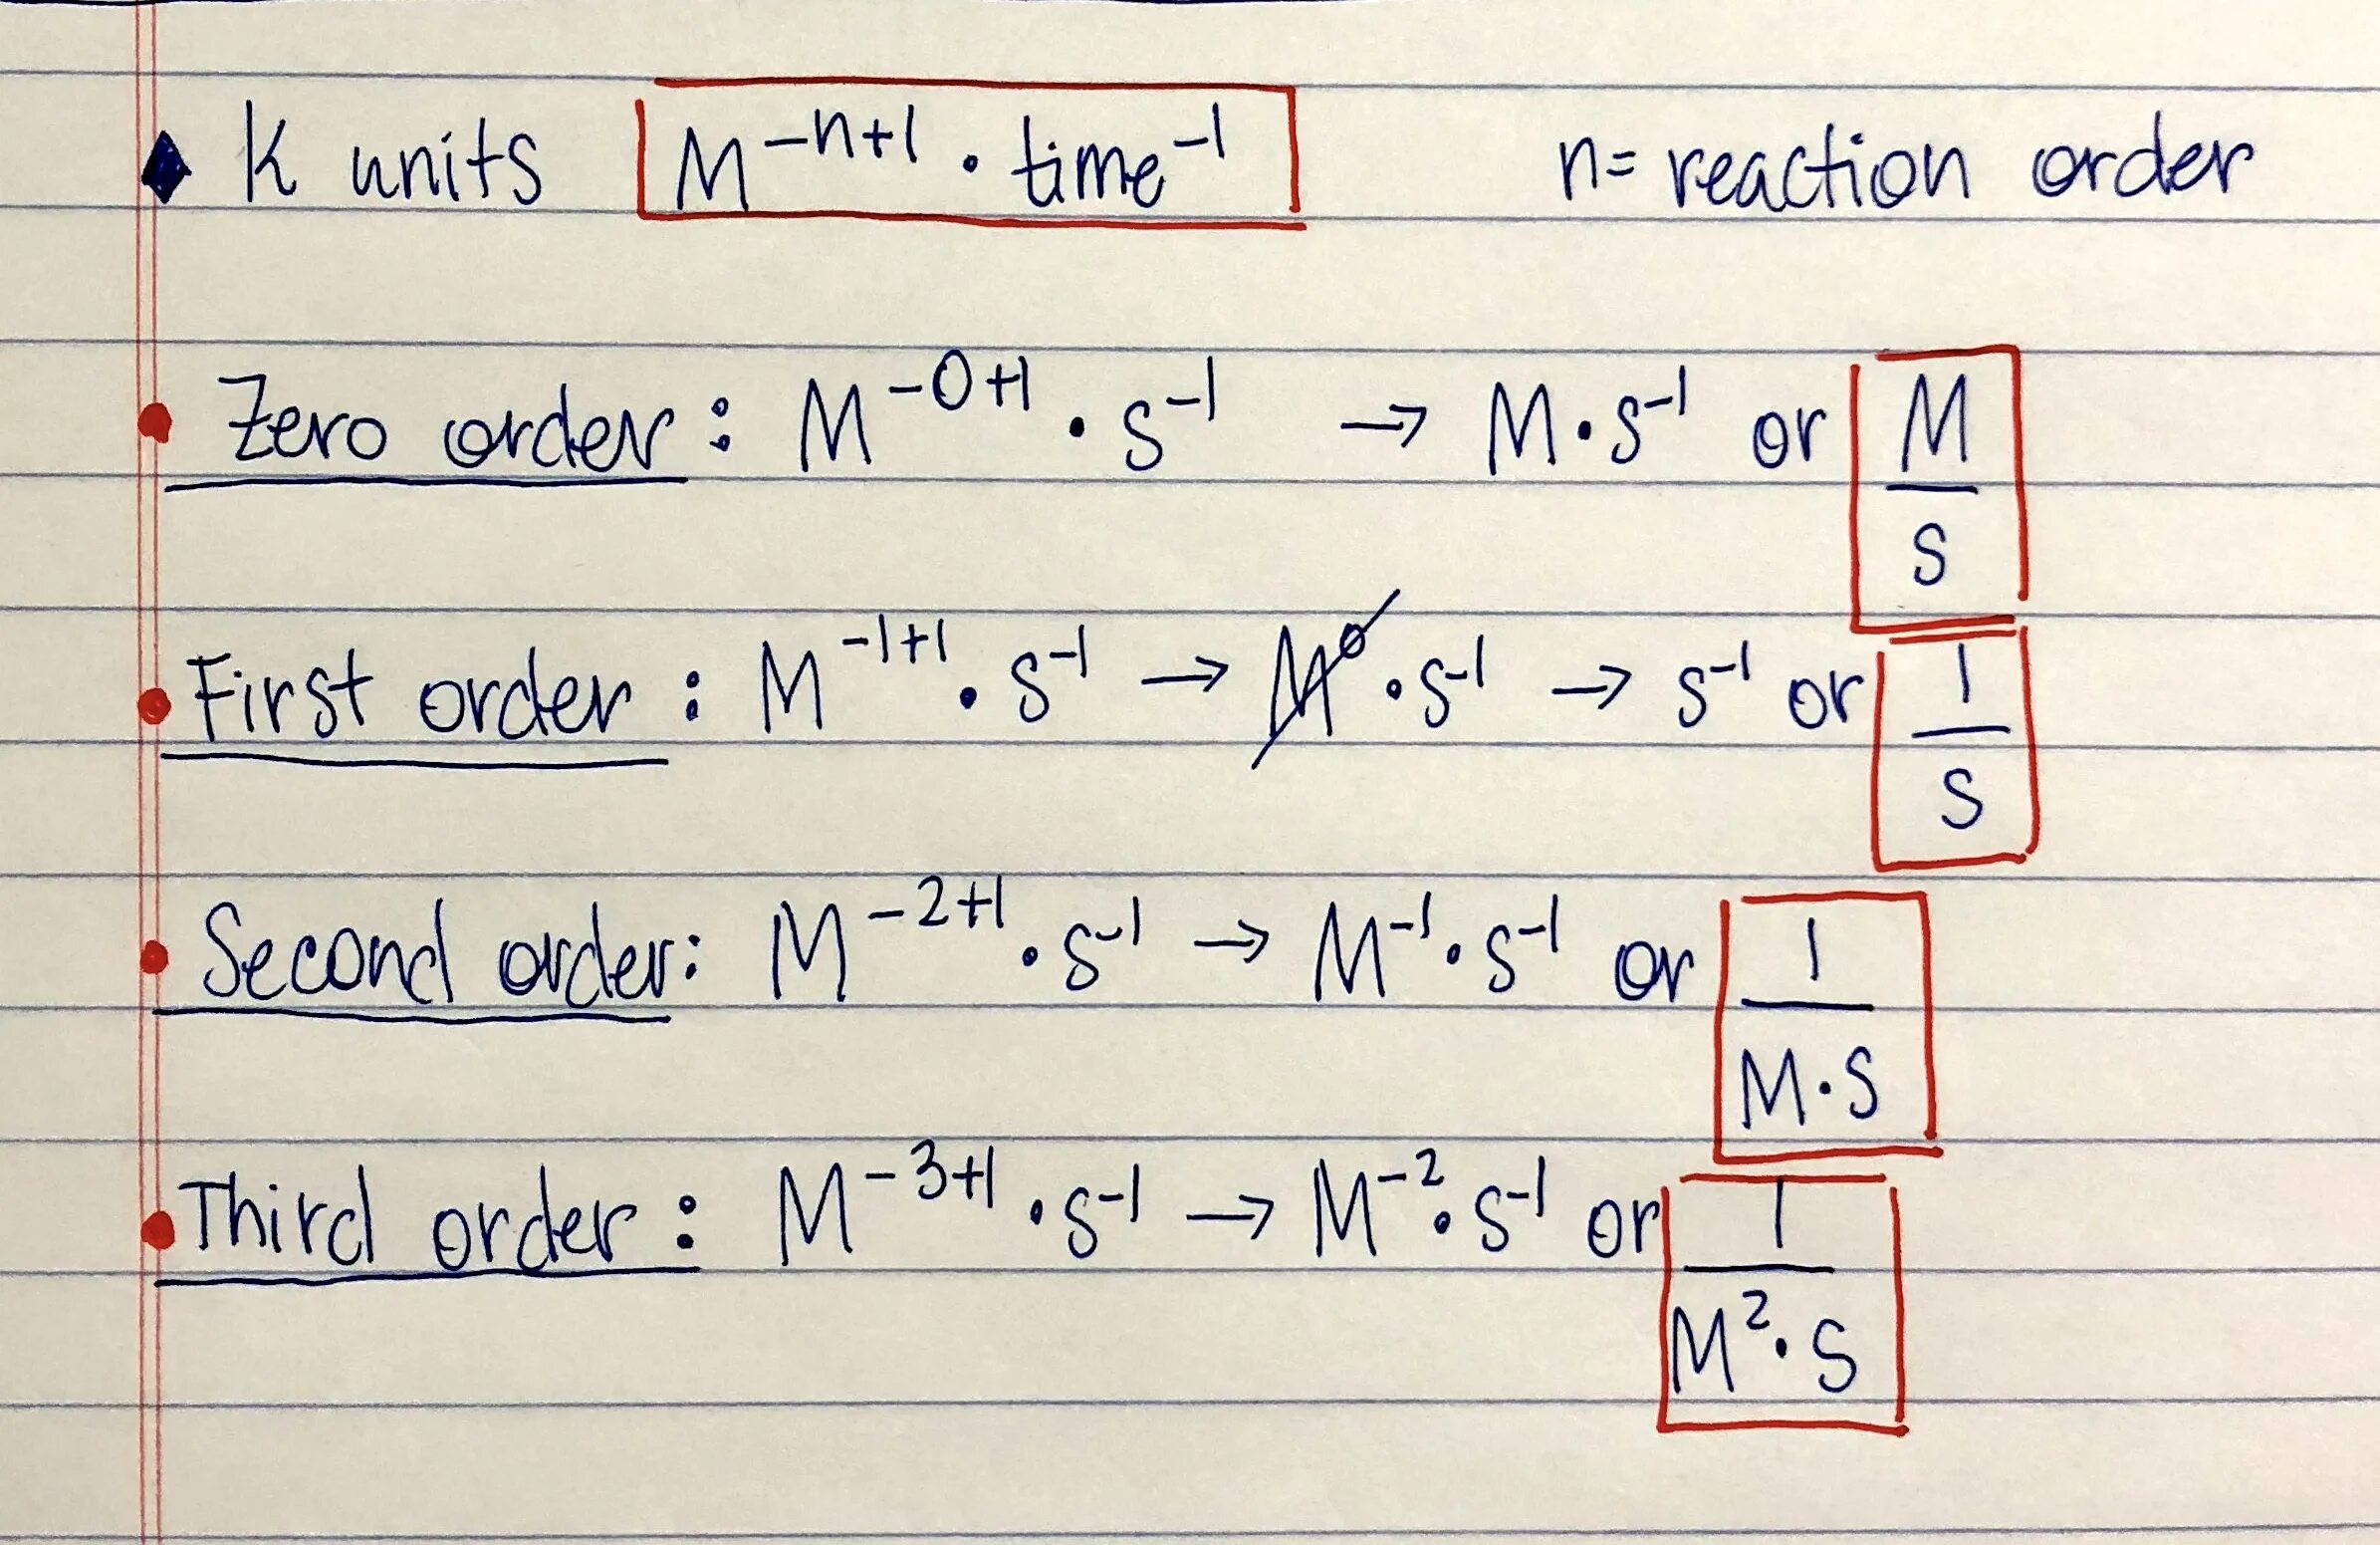 K units M⁻ⁿ⁺¹ · time⁻¹ n= reaction order
Zero order : M⁻⁰⁺¹ · s⁻¹ → M·s⁻¹ or M/s
First order : M⁻¹⁺¹ · s⁻¹ → M⁰ · s⁻¹ → s⁻¹ or 1/s
Second order: M⁻²⁺¹ · s⁻¹ → M⁻¹ · s⁻¹ or 1/M·s
Third order : M⁻³⁺¹ · s⁻¹ → M⁻² · s⁻¹ or 1/M²·s